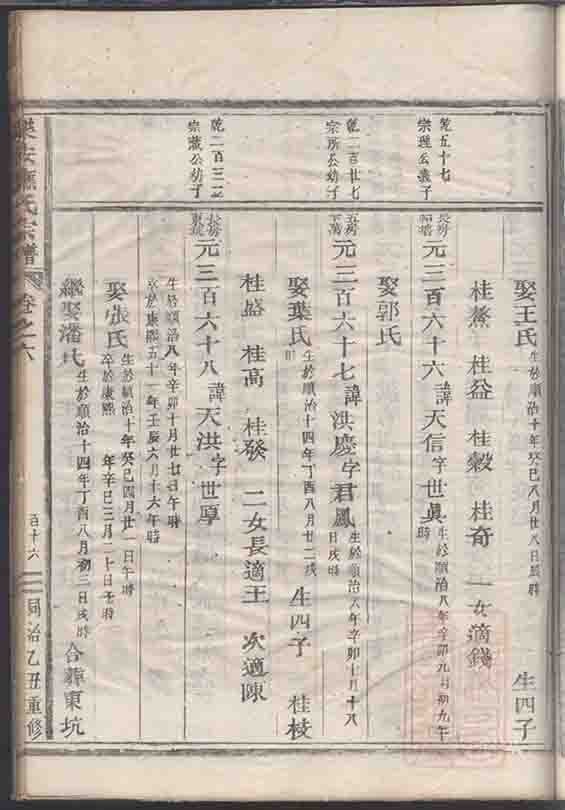 娶王氏 生於順治十年癸巳八月廿八日辰時 生四子
桂 桂益 桂穀 桂奇 一女適錢
乾五十七
宗理公義子
長房
元三百六十六諱天信字世眞 生於順治八年辛卯九月初九午時
娶郭氏
乾二百廿七
宗所公幼子
五房
元三百六十七諱洪慶字君鳳 生於順治八年辛卯十月十八日戌時
娶葉氏 生於順治十四年丁酉八月廿二戌時 生四子 桂枝
桂盛 桂高 桂發 二女長適王 次適陳
乾二百三二
宗藏公幼子
長房
元三百六十八諱天洪字世享
生於順治八年辛卯十月廿七日午時
卒於康熙五十一年壬辰六月十六午時
娶張氏 生於順治十年癸巳四月廿一日午時
卒於康熙 年辛巳三月二十日子時
繼娶潘氏 生於順治十四年丁酉八月初三日戌時 合葬東坑
氏宗譜 卷之六 百十六 同治乙丑重修